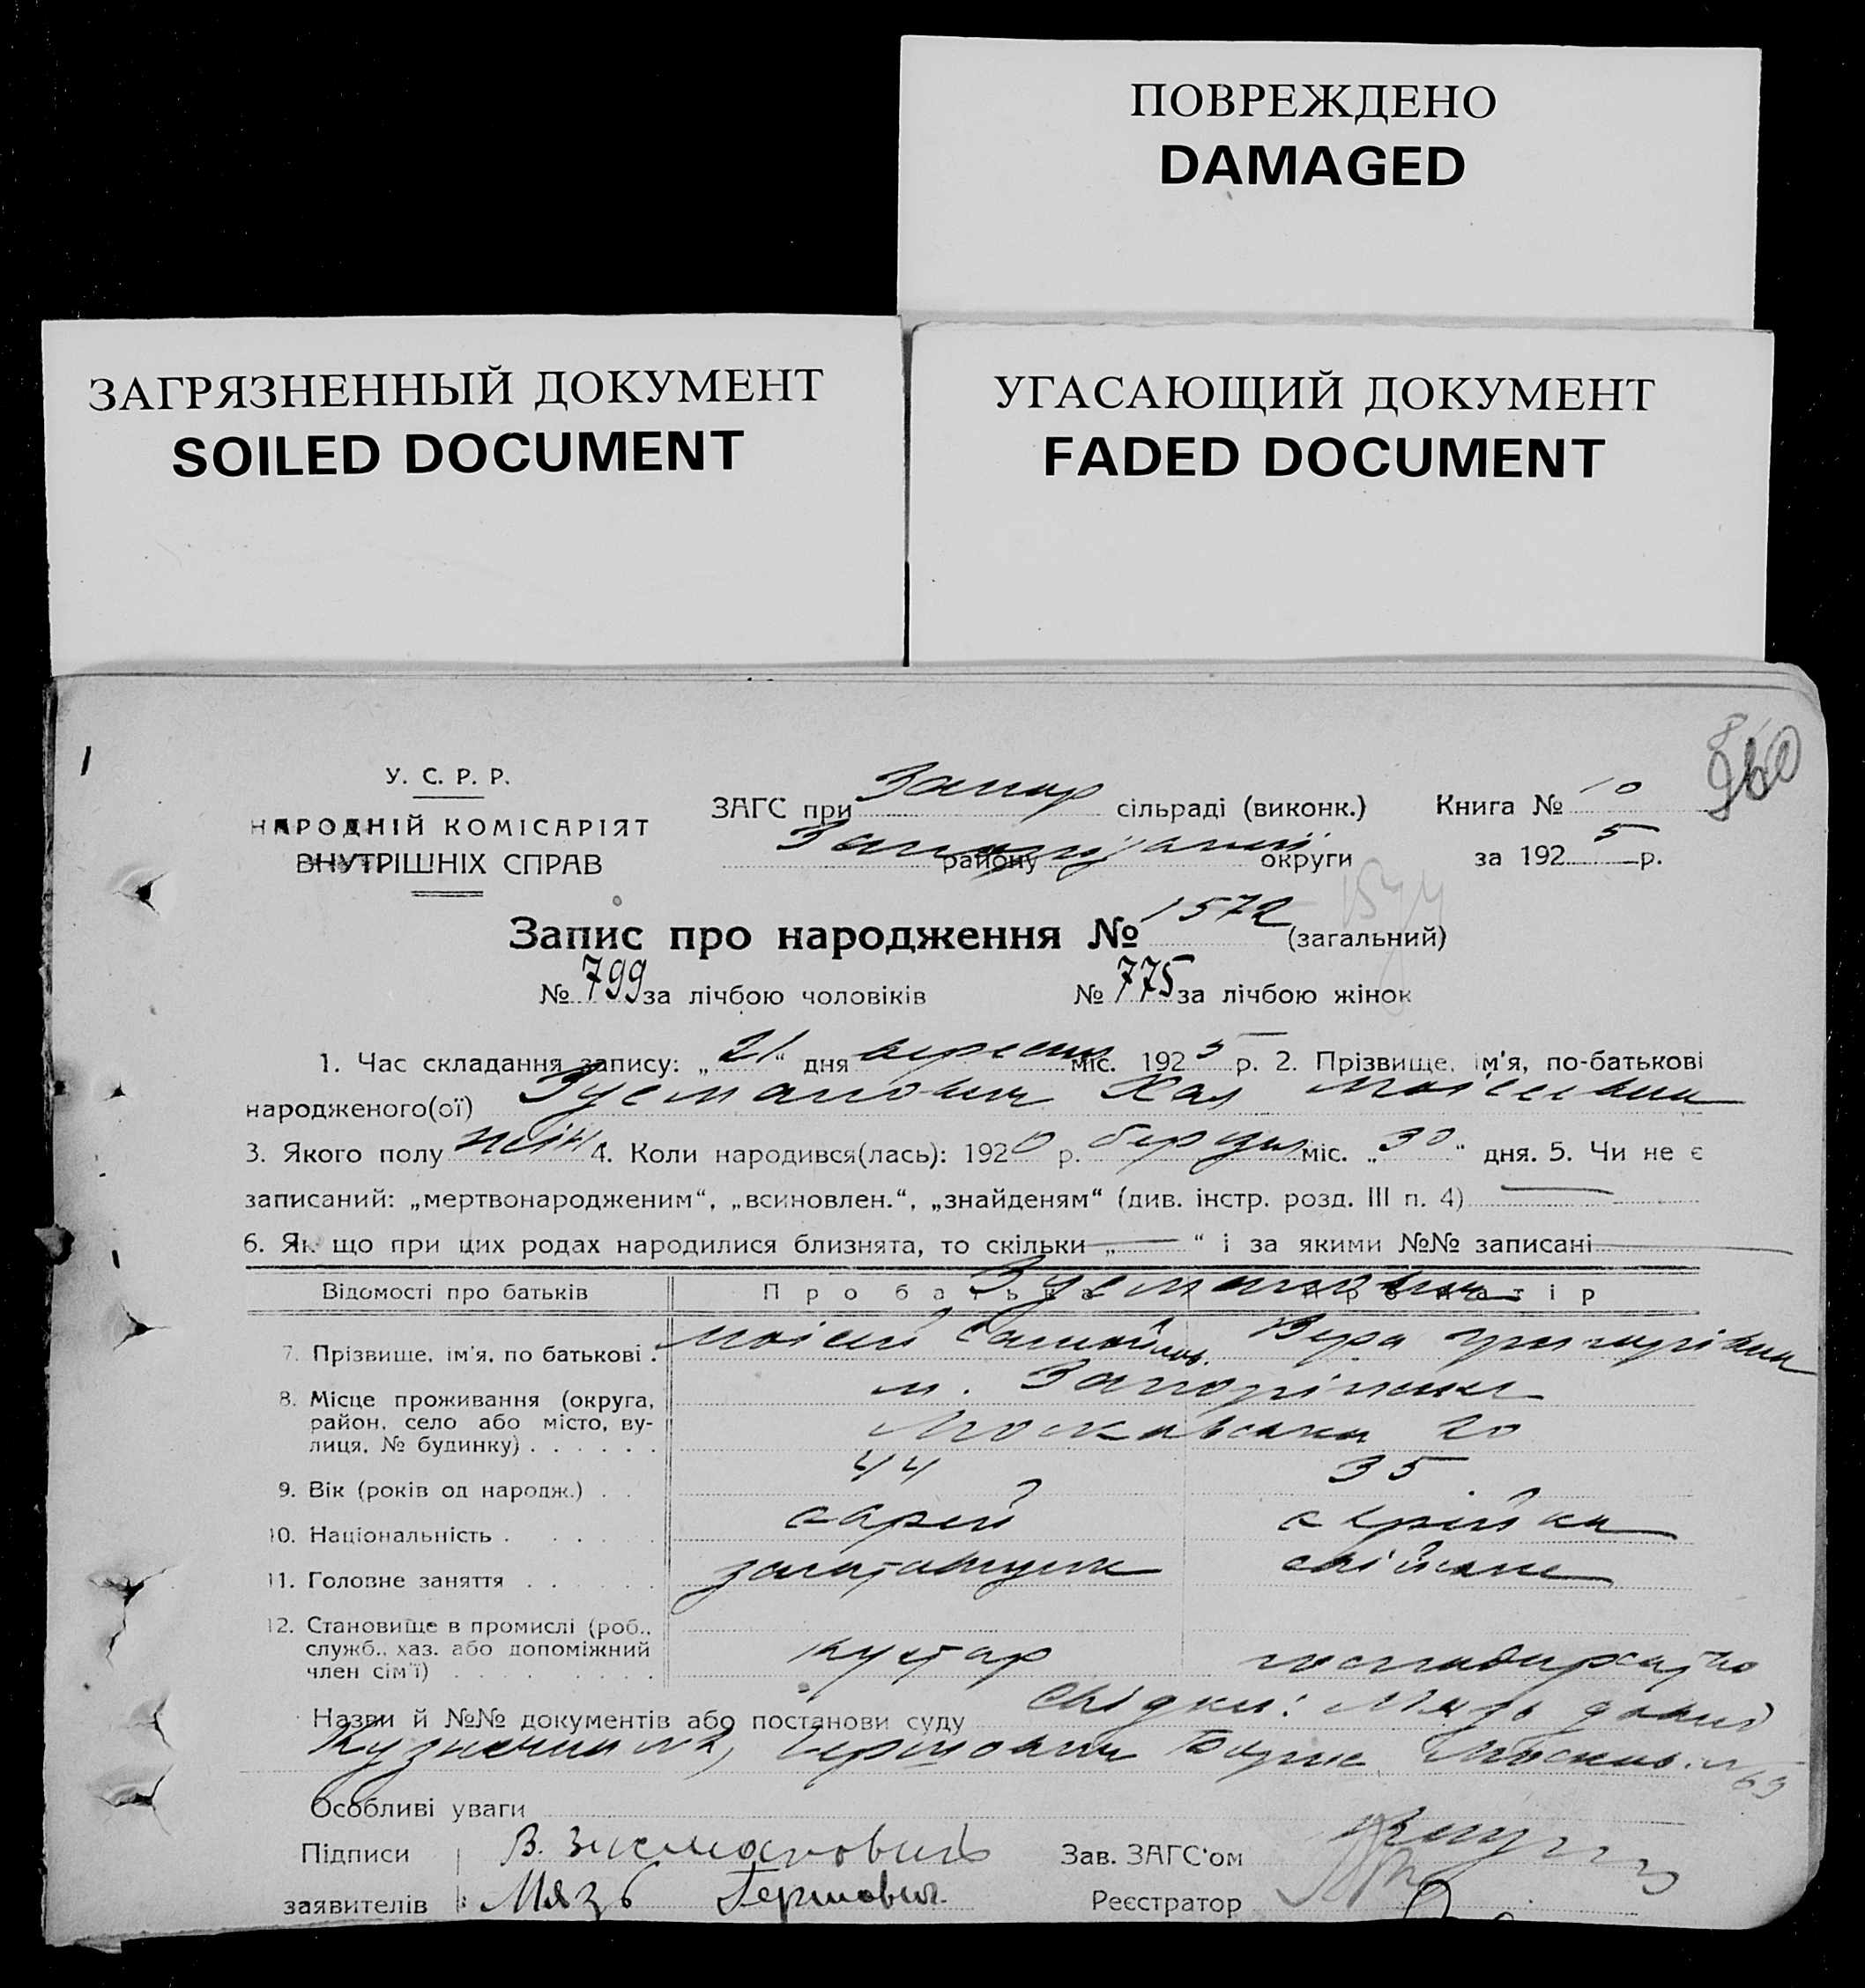 ПОВРЕЖДЕНО
DAMAGED
ЗАГРЯЗНЕННЫЙ ДОКУМЕНТ
SOILED DOCUMENT
УГАСАЮЩИЙ ДОКУМЕНТ
FADED DOCUMENT
У. С. Р. Р.
НАРОДНІЙ КОМІСАРІЯТ
ВНУТРІШНІХ СПРАВ
ЗАГС при Запор сільраді (виконк.) Книга № 10
району округи за 1925 р.
Запис про народження № 1572 (загальний)
№ 799 за лічбою чоловіків № 775 за лічбою жінок
1. Час складання запису: „21“ дня вересня міс. 1925 р. 2. Прізвище, ім'я, по-батькові
народженого(ої) Зусманович Хая Мойсеевна
3. Якого полу жін 4. Коли народився(лась): 1920 р. березня міс. „30“ дня. 5. Чи не є
записаний: „мертвонародженим“, „всиновлен.“, „знайденям“ (див. інстр. розд. III п. 4)
6. Як що при цих родах народилися близнята, то скільки „ “ і за якими №№ записані
Відомості про батьків Про батька Про матір
Зусманович
7. Прізвище, ім'я, по батькові . Мойсей Самойлов. Вера Григорівна
8. Місце проживання (округа, район, село або місто, вулиця, № будинку) . . . . . . м. Запоріжжя
Московська 20
9. Вік (років од народж.) . . 44 35
10. Національність . . . . . еврей еврейка
11. Головне заняття . . . . . . хатне
12. Становище в промислі (роб., служб., хаз. або допоміжний член сім'ї) . . . . . . . . . кустар
Назви й №№ документів або постанови суду Свідки: Мязь
Гершович
Особливі уваги
Підписи В. Зусманович Зав. ЗАГС'ом
заявителів Мязь Гершович Реєстратор